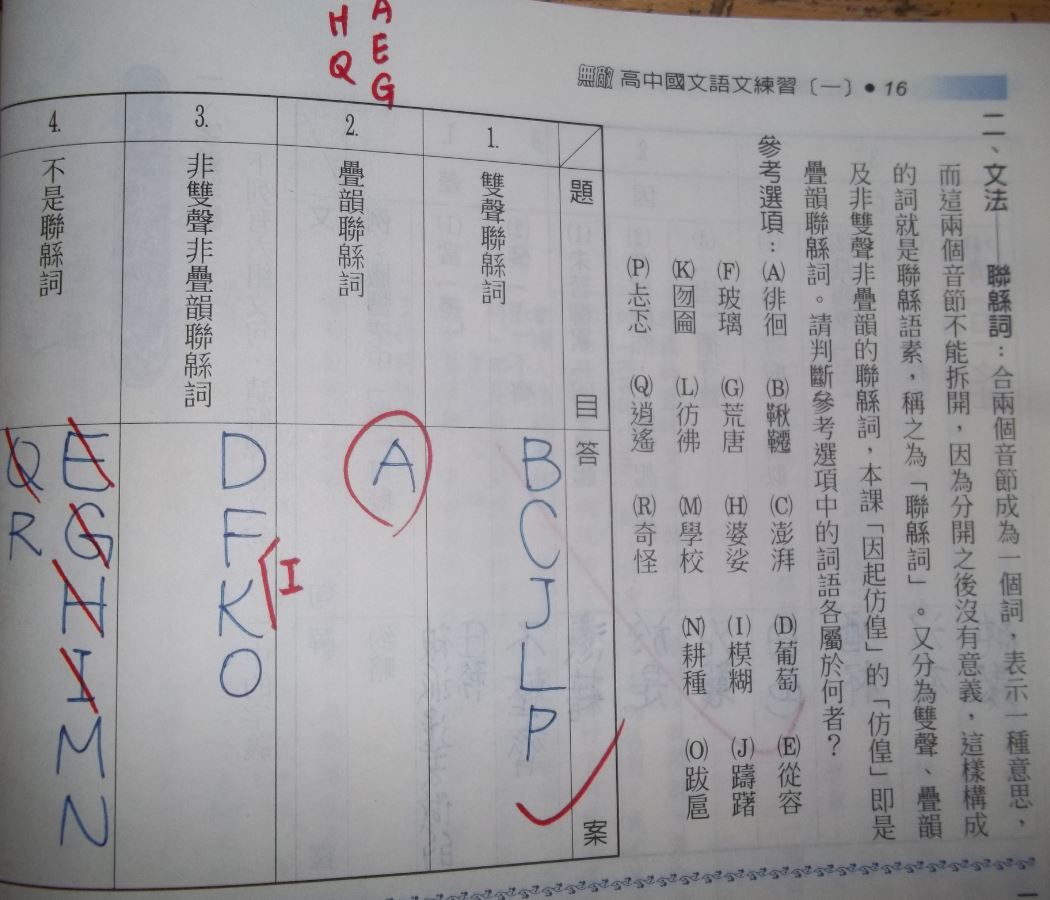 無敵 高中國文語文練習〔一〕• 16
二、文法——聯緜詞：合兩個音節成為一個詞，表示一種意思，
而這兩個音節不能拆開，因為分開之後沒有意義，這樣構成
的詞就是聯緜語素，稱之為「聯緜詞」。又分為雙聲、疊韻
及非雙聲非疊韻的聯緜詞，本課「因起仿偟」的「仿偟」即是
疊韻聯緜詞。請判斷參考選項中的詞語各屬於何者？
參考選項：(A)徘徊 (B)鞦韆 (C)澎湃 (D)葡萄 (E)從容
(F)玻璃 (G)荒唐 (H)婆娑 (I)模糊 (J)躊躇
(K)囫圇 (L)彷彿 (M)學校 (N)耕種 (O)跋扈
(P)忐忑 (Q)逍遙 (R)奇怪
題目
答案
1.
雙聲聯緜詞
B
C
J
L
P
2.
疊韻聯緜詞
A
A
E
G
H
Q
3.
非雙聲非疊韻聯緜詞
D
F
K
O
I
4.
不是聯緜詞
E
G
H
I
M
N
Q
R